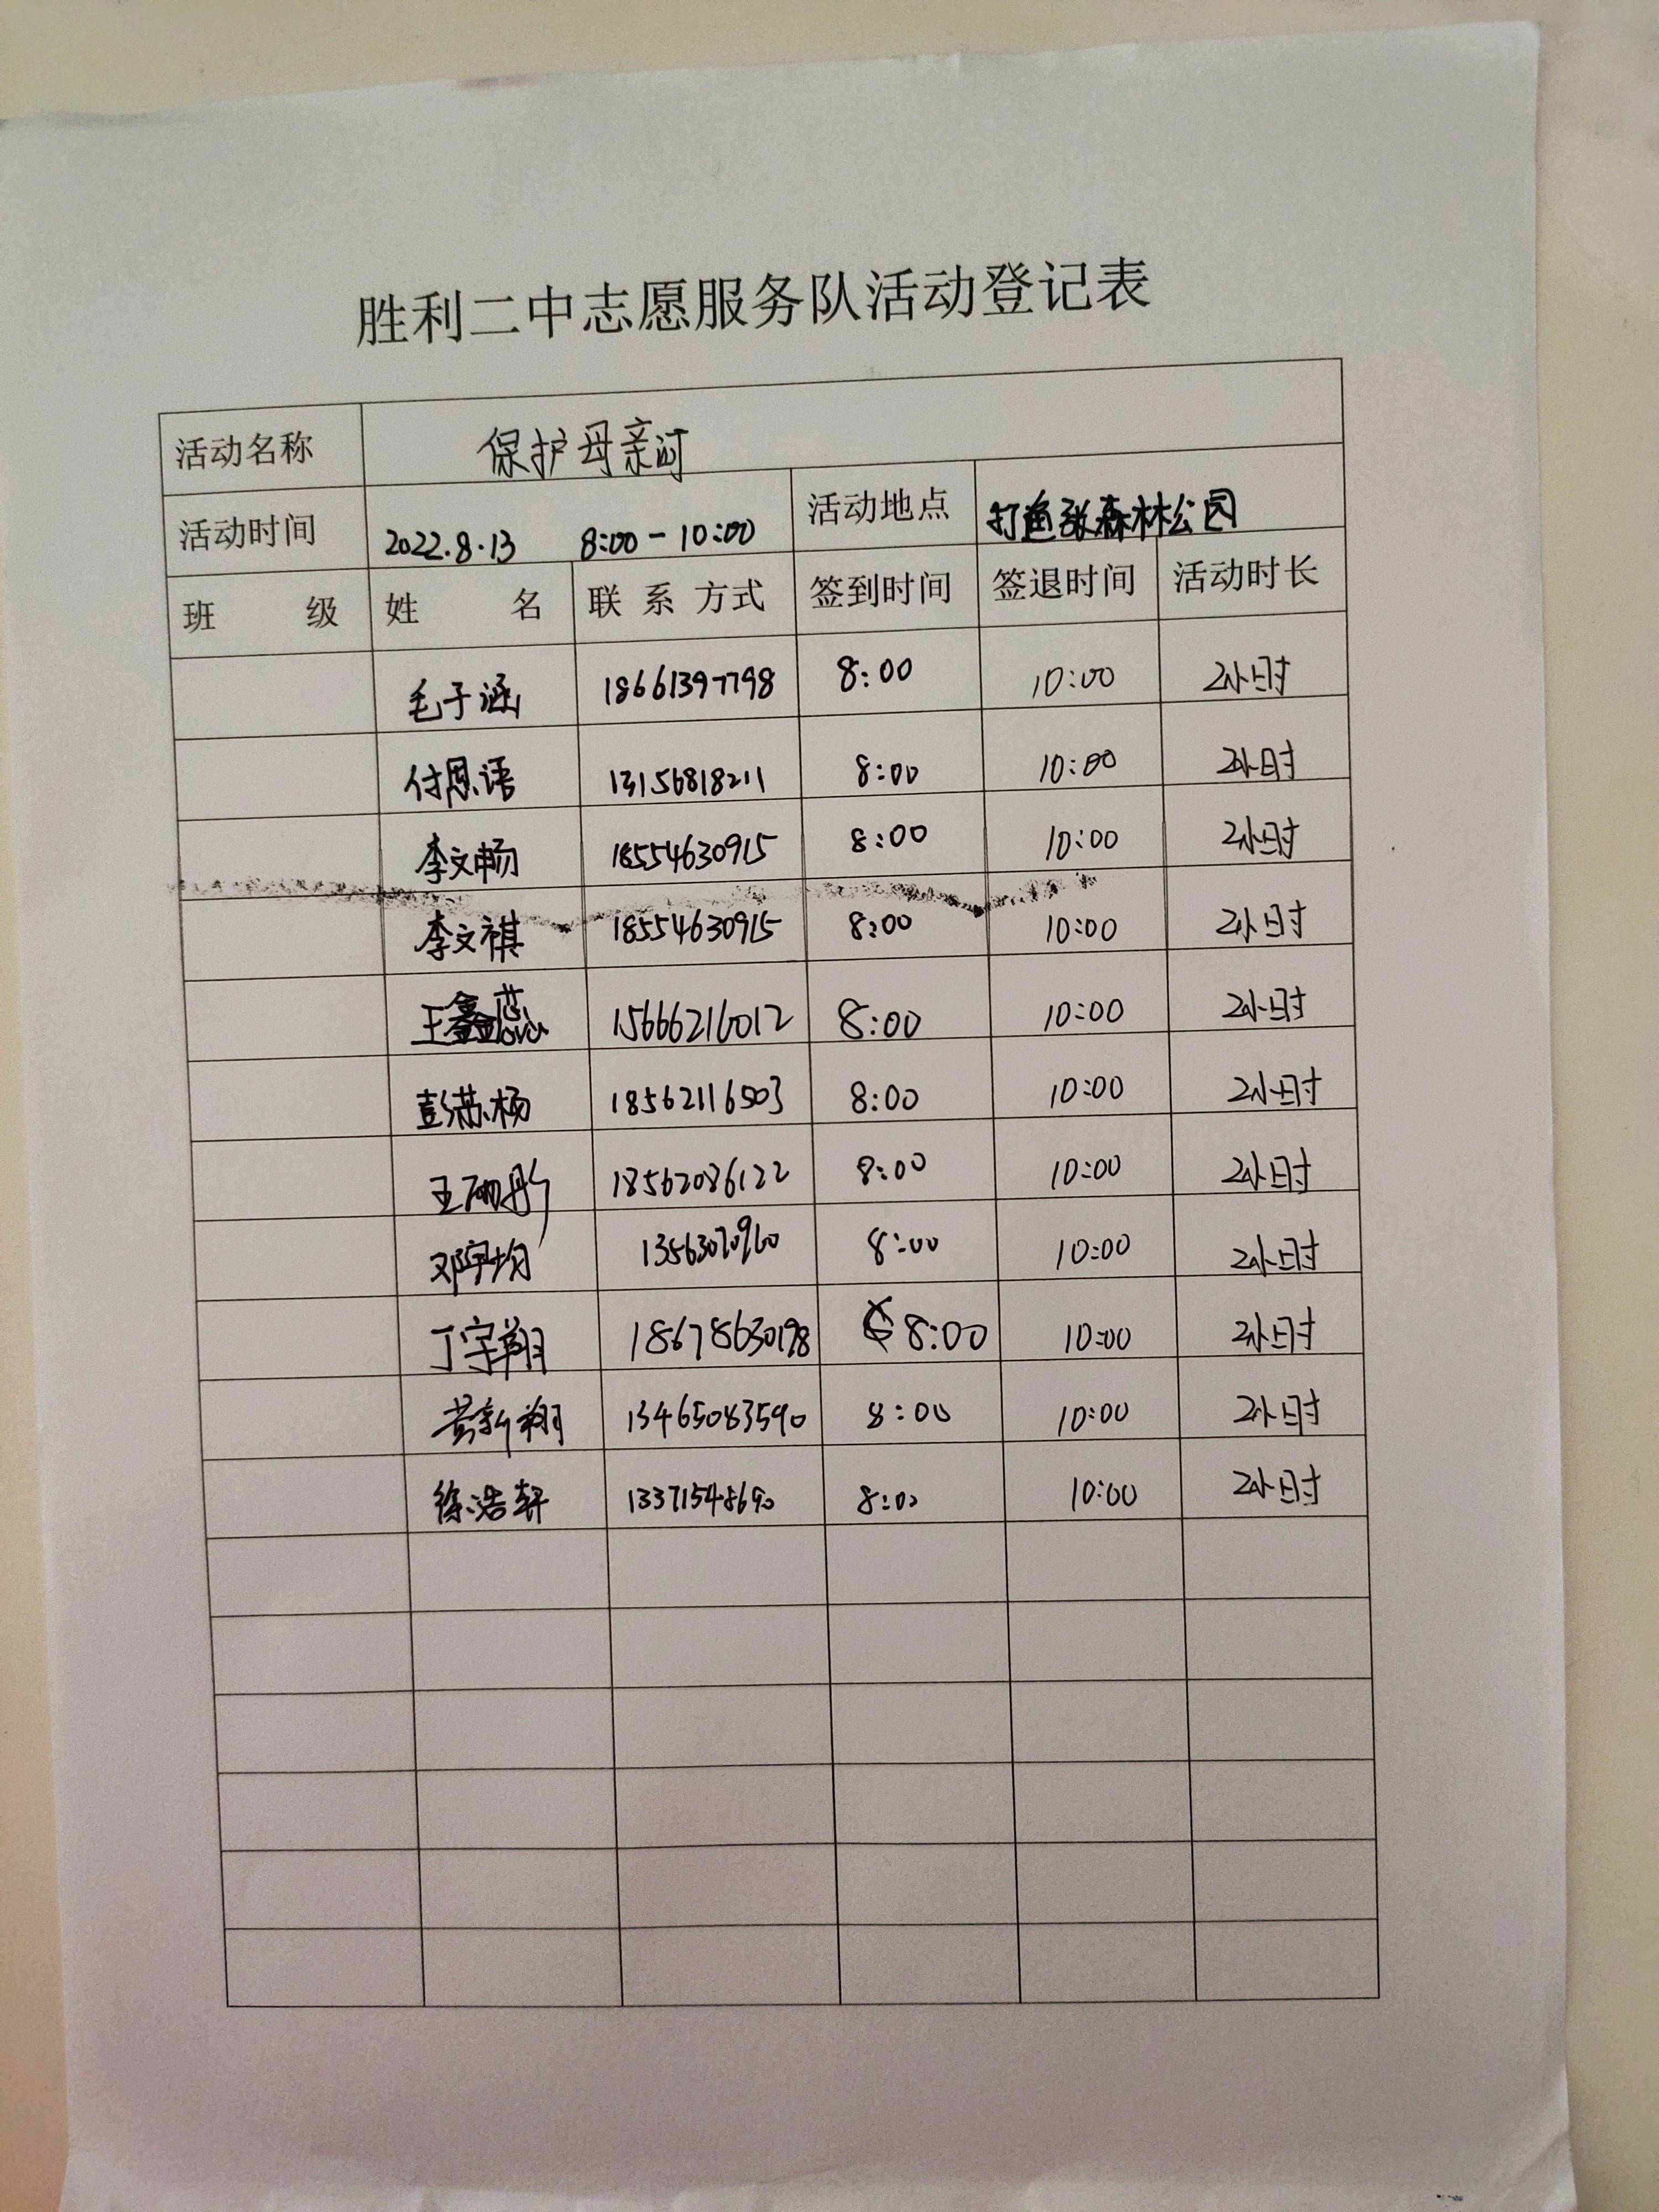 胜利二中志愿服务队活动登记表
活动名称 保护母亲河
活动时间 2022.8.13 8:00-10:00 活动地点 打渔张森林公园
班 级 姓 名 联 系 方式 签到时间 签退时间 活动时长
毛子涵 18661397798 8:00 10:00 2小时
付思语 13156818211 8:00 10:00 2小时
李文畅 18554630915 8:00 10:00 2小时
李文祺 18554630915 8:00 10:00 2小时
王鑫蕊 15666216012 8:00 10:00 2小时
彭 杨 18562116503 8:00 10:00 2小时
王 彤 18562086122 8:00 10:00 2小时
邓宇均 8:00 10:00 2小时
丁宇翔 18678630198 8:00 10:00 2小时
黄新翔 13465083590 8:00 10:00 2小时
徐浩轩 13371548690 8:00 10:00 2小时